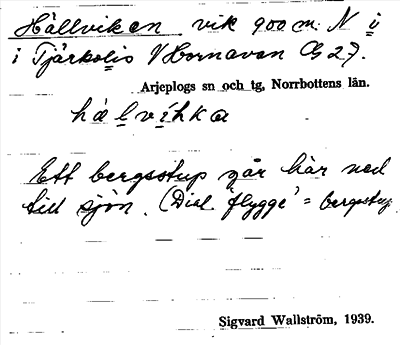 Hällviken vik 900 m. N
i Tjärkolis V Hornavan G 27.
Arjeplogs sn och tg, Norrbottens län.
hálvíhka
Ett bergsstup går här ned
till sjön. (Dial. flygge' = bergsstup
Sigvard Wallström, 1939.